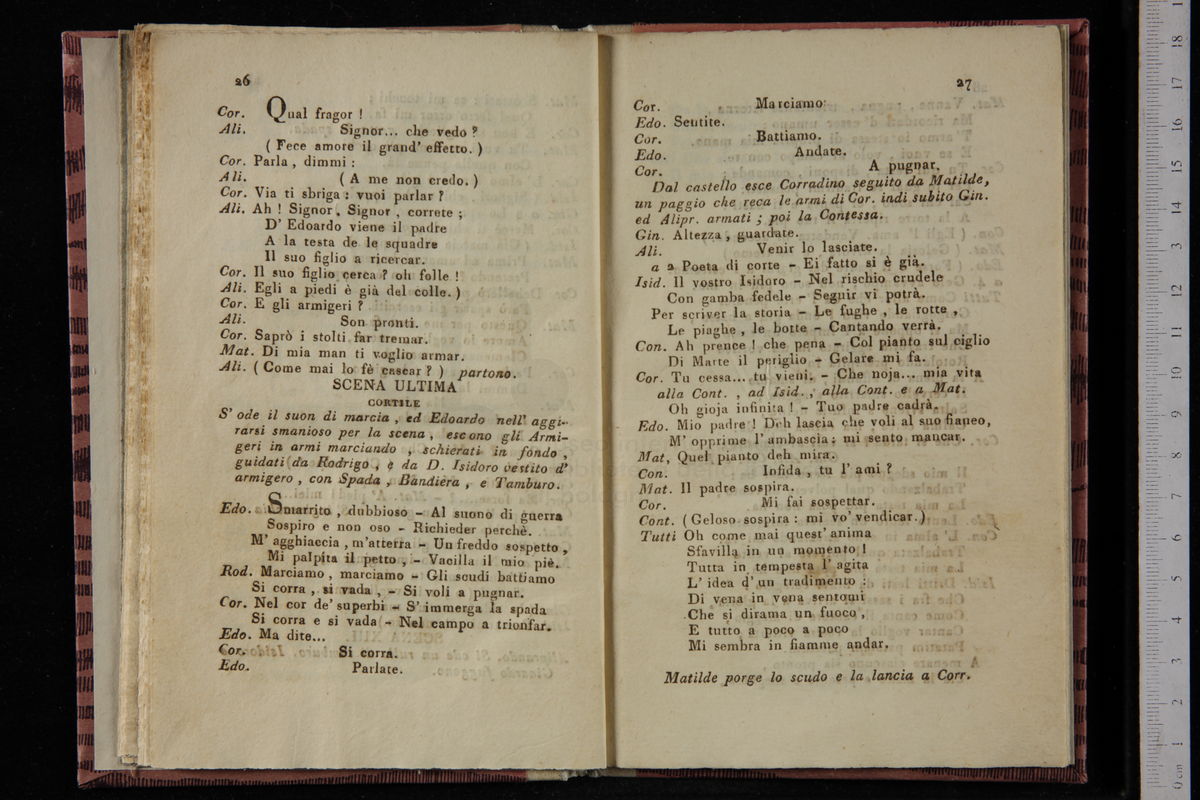 26
Cor. Qual fragor !
Ali. Signor... che vedo ?
( Fece amore il grand' effetto. )
Cor. Parla , dimmi :
Ali. ( A me non credo. )
Cor. Via ti sbriga : vuoi parlar ?
Ali. Ah ! Signor , Signor , correte ;
D' Edoardo viene il padre
A la testa de le squadre
Il suo figlio a ricercar.
Cor. Il suo figlio cerca ? oh folle !
Ali. Egli a piedi è già del colle. )
Cor. E gli armigeri ?
Ali. Son pronti.
Cor. Saprò i stolti far tremar.
Mat. Di mia man ti voglio armar.
Ali. ( Come mai lo fè cascar ? ) partono.
SCENA ULTIMA
CORTILE
S' ode il suon di marcia , ed Edoardo nell' aggi-
rarsi smanioso per la scena , escono gli Armi-
geri in armi marciando , schierati in fondo ,
guidati da Rodrigo , e da D. Isidoro vestito d'
armigero , con Spada , Bandiera , e Tamburo.
Edo. Smarrito , dubbioso - Al suono di guerra
Sospiro e non oso - Richieder perchè.
M' agghiaccia , m'atterra - Un freddo sospetto ,
Mi palpita il petto , - Vacilla il mio piè.
Rod. Marciamo , marciamo - Gli scudi battiamo
Si corra , si vada , - Si voli a pugnar.
Cor. Nel cor de' superbi - S' immerga la spada
Si corra e si vada - Nel campo a trionfar.
Edo. Ma dite...
Cor. Si corra.
Edo. Parlate.
27
Cor. Marciamo.
Edo. Sentite.
Cor. Battiamo.
Edo. Andate.
Cor. A pugnar.
Dal castello esce Corradino seguito da Matilde,
un paggio che reca le armi di Cor. indi subito Gin.
ed Alipr. armati ; poi la Contessa.
Gin. Altezza , guardate.
Ali. Venir lo lasciate.
a 2 Poeta di corte - Ei fatto si è già.
Isid. Il vostro Isidoro - Nel rischio crudele
Con gamba fedele - Seguir vi potrà.
Per scriver la storia - Le fughe , le rotte ,
Le piaghe , le botte - Cantando verrà.
Con. Ah prence ! che pena - Col pianto sul ciglio
Di Marte il periglio - Gelare mi fa.
Cor. Tu cessa... tu vieni. - Che noja... mia vita
alla Cont. , ad Isid. , alla Cont. e a Mat.
Oh gioja infinita ! - Tuo padre cadrà.
Edo. Mio padre ! Deh lascia che voli al suo fianeo,
M' opprime l' ambascia ; mi sento mancar.
Mat, Quel pianto deh mira.
Con. Infida , tu l' ami ?
Mat. Il padre sospira.
Cor. Mi fai sospettar.
Cont. ( Geloso sospira : mi vo' vendicar. )
Tutti Oh come mai quest' anima
Sfavilla in un momento !
Tutta in tempesta l' agita
L' idea d' un tradimento :
Di vena in vena sentomi
Che si dirama un fuoco ,
E tutto a poco a poco
Mi sembra in fiamme andar.
Matilde porge lo scudo e la lancia a Corr.